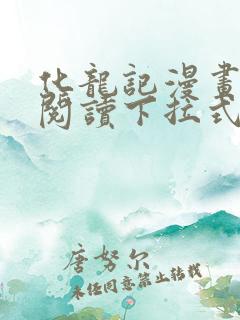 化龍記漫畫
閱讀下拉式
唐努尔
未经同意禁止转载